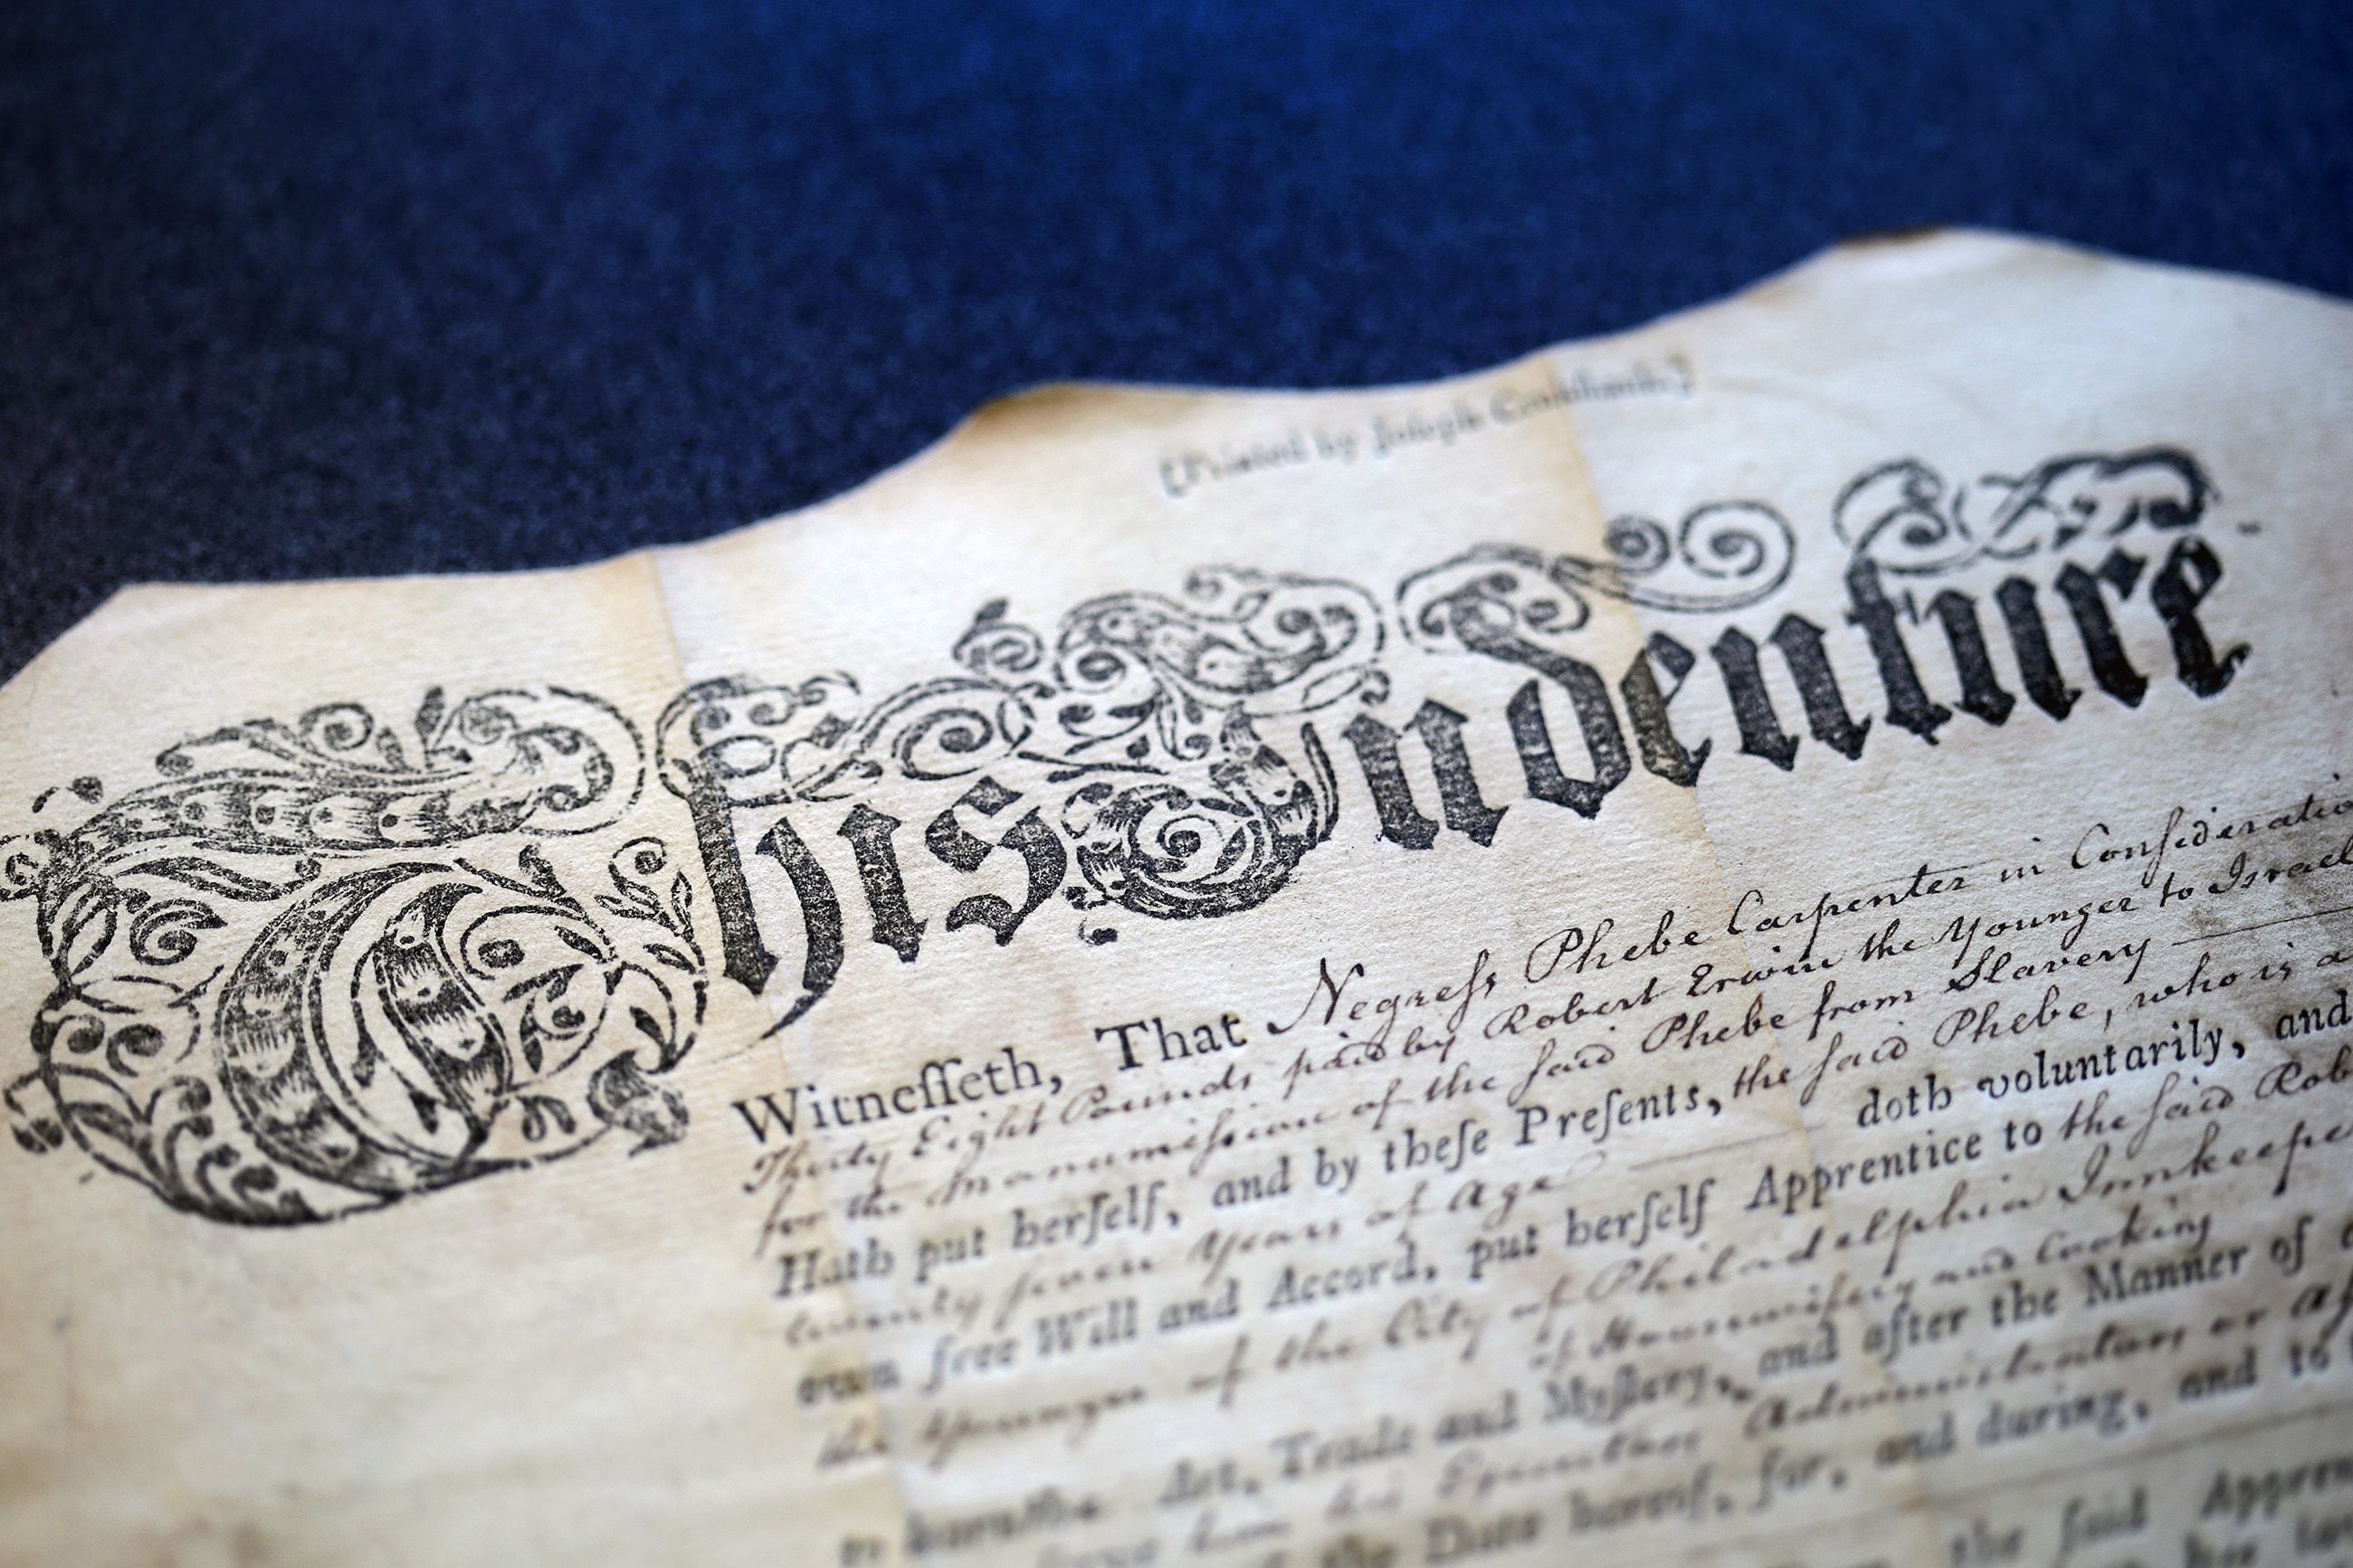 [Printed by Joseph Crukshank.]
This Indenture
Witneſſeth, That Negreſs Phebe Carpenter in Conſideratio
Thirty Eight Pounds paid by Robert Erwin the Younger to Israel
for the Manumiſsion of the ſaid Phebe from Slavery
Hath put herſelf, and by theſe Preſents, the ſaid Phebe, who is a
twenty ſeven Years of Age doth voluntarily, and
own free Will and Accord, put herſelf Apprentice to the ſaid Rob
the Younger of the City of Philadelphia Innkeeper
of Houswifery and Cooking
Art, Trade and Myſtery, and after the Manner of
his Executors Administrators or
the Date hereof, for, and during, and to
the ſaid Appren